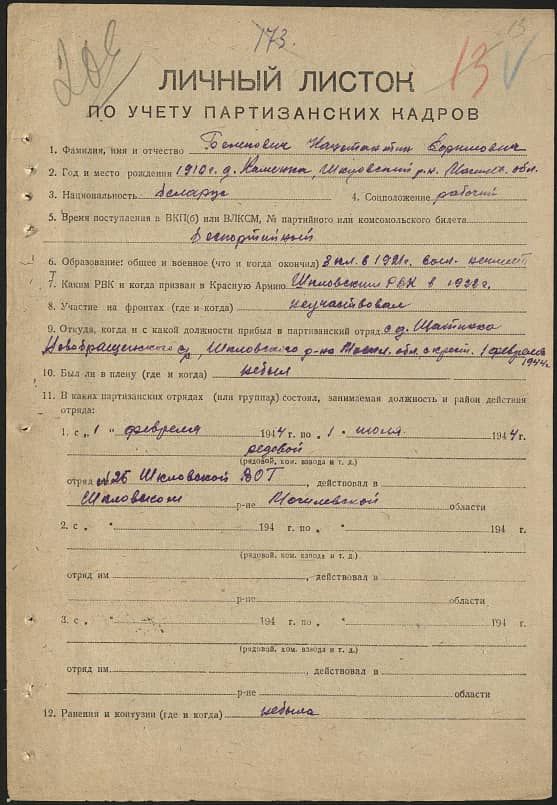 173.
13
204
13 V
ЛИЧНЫЙ ЛИСТОК
ПО УЧЕТУ ПАРТИЗАНСКИХ КАДРОВ
1. Фамилия, имя и отчество Константин
2. Год и место рождения 1910 г. д. Каменка, Шкловский р-н. Могил. обл.
3. Национальность беларус 4. Соцположение рабочий
5. Время поступления в ВКП(б) или ВЛКСМ, № партийного или комсомольского билета
беспортийный
6. Образование: общее и военное (что и когда окончил) 3 кл. в 1921г.
7. Каким РВК и когда призван в Красную Армию Шкловским РВК в г.
8. Участие на фронтах (где и когда) неучаствовал
9. Откуда, когда и с какой должности прибыл в партизанский отряд с д.
Шкловского р-на Могил. обл. 1 февраля
1944г.
10. Был ли в плену (где и когда) небыл
11. В каких партизанских отрядах (или группах) состоял, занимаемая должность и район действия
отряда:
1. с „ 1 " февремя 1944 г. по „ 1 " июля 1944 г.
редовой
(рядовой, ком. взвода и т. д.)
отряд №25 Шкловской ВОГ, действовал в
Шкловском р-не Могилевской области
2. с „ " 194 г. по „ " 194 г.
(рядовой, ком. взвода и т. д.)
отряд им , действовал в
р-не области
3. с „ " 194 г. по „ " 194 г.
(рядовой, ком. взвода и т. д.)
отряд им. , действовал в
р-не области
12. Ранения и контузии (где и когда) небыла